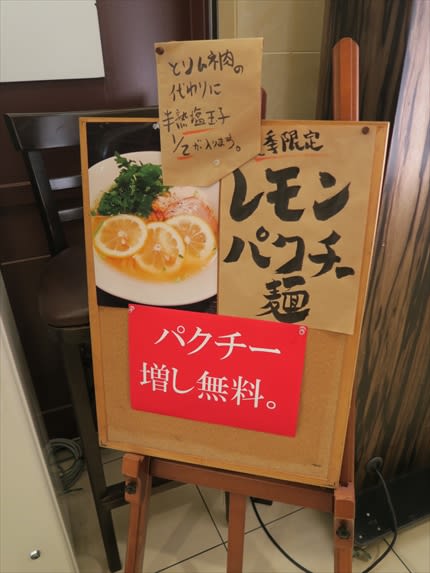 とりムネ肉の
代わりに
半熟塩玉子
1/2が入ります。
季限定
レモン
パクチー
麺
パクチー
増し無料。